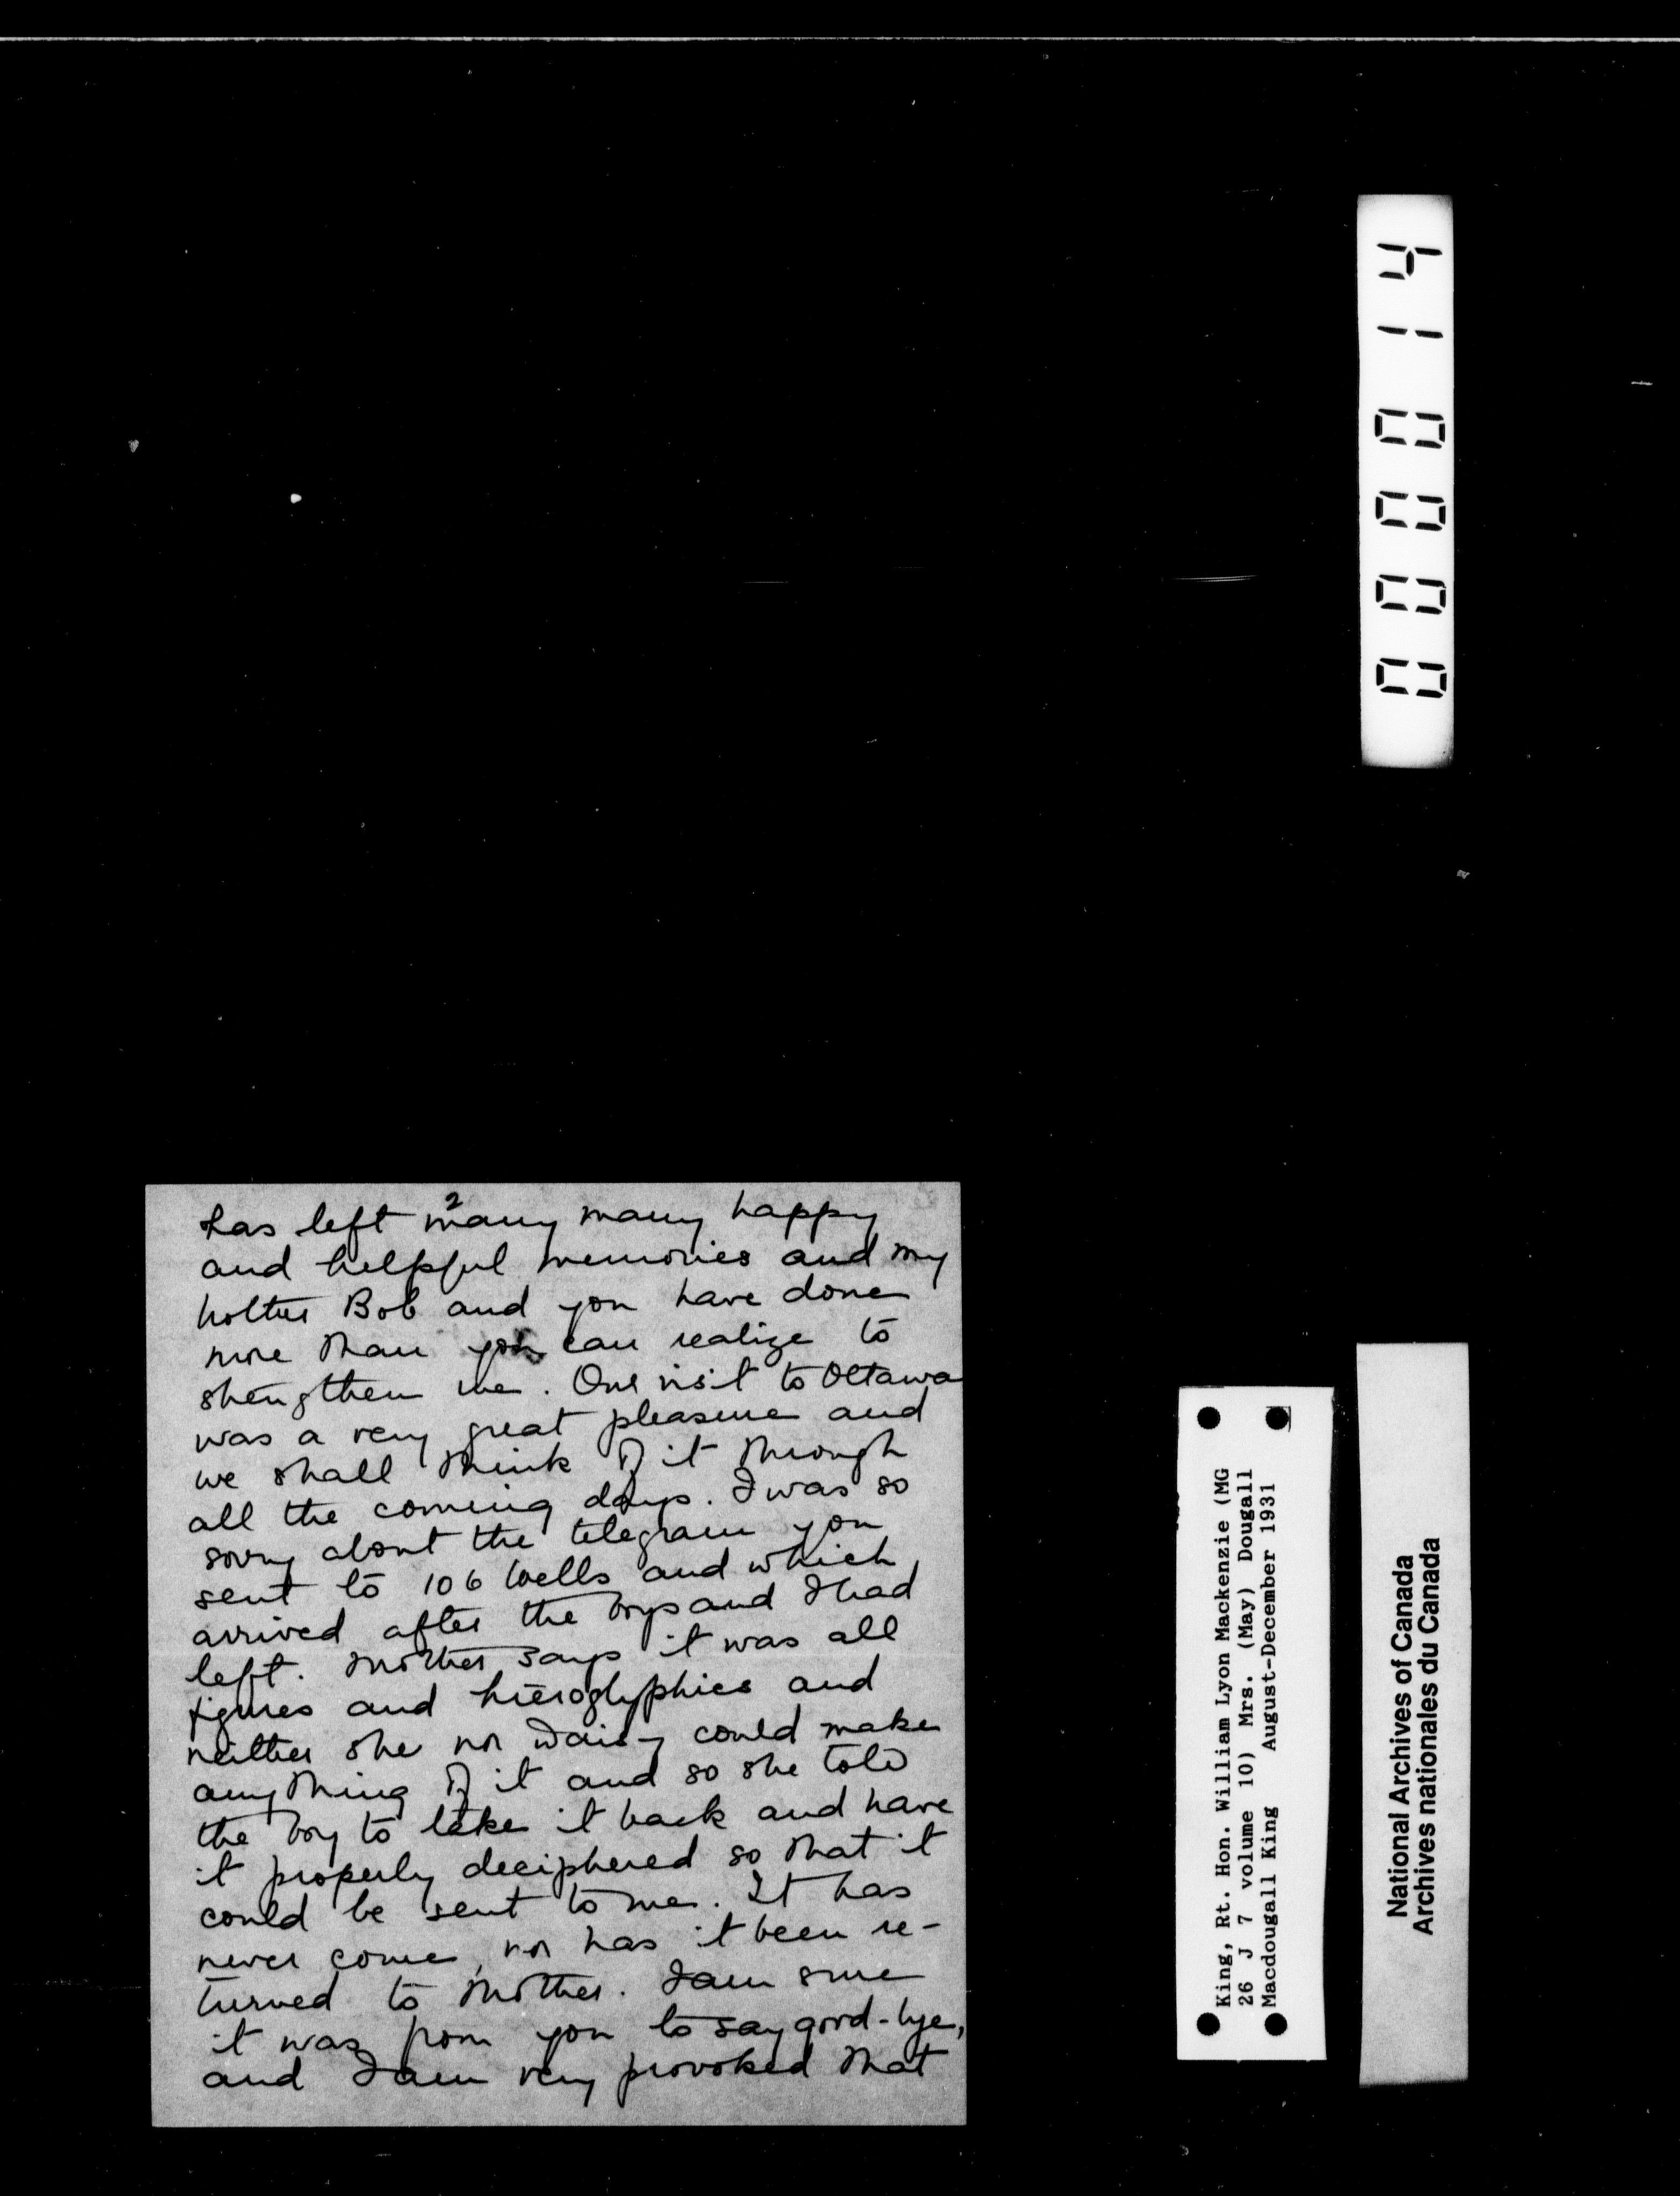 000014
2
has left many many happy
and helpful memories and my
brother Bob and you have done
more than you can realize to
strengthen me. Our visit to Ottawa
was a very great pleasure and
we shall think of it through
all the coming days. I was so
sorry about the telegram you
sent to 106 Wells and which
arrived after the boys and I had
left. Mother says it was all
figures and hieroglyphics and
neither she nor Daisy could make
anything of it and so she told
the boy to take it back and have
it properly deciphered so that it
could be sent to me. It has
never come, nor has it been re-
turned to Mother. I am sure
it was from you to say good-bye,
and I am very provoked that
King, Rt. Hon. William Lyon Mackenzie (MG
26 J 7 volume 10) Mrs. (May) Dougall
Macdougall King August-December 1931
National Archives of Canada
Archives nationales du Canada